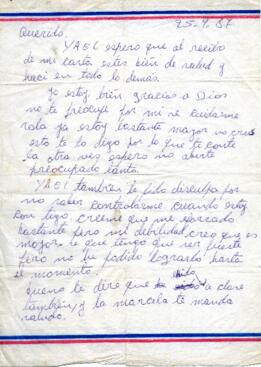 25-4.87
Querido,
YAEL espero que al recibo
de mi carta estes bien de salud y
haci en todo lo demas.
Yo estoy bien gracias a Dios
no te preocupe por mi se cuidarme
sola ya estoy bastante mayor no cres
esto te lo digo por lo que te conte
la otra ves espero no aberte
preocupado tanto.
YAEL tambien te pido disculpa por
no saber controlarme cuando estoy
con tigo creeme que me
bastante pero mi debilidad creo que es
mayor se que tengo que ser fuerte
pero no he podido lograrlo hasta
el momento.
quero te dire que
tambien, y la marcela te manda
saludo.